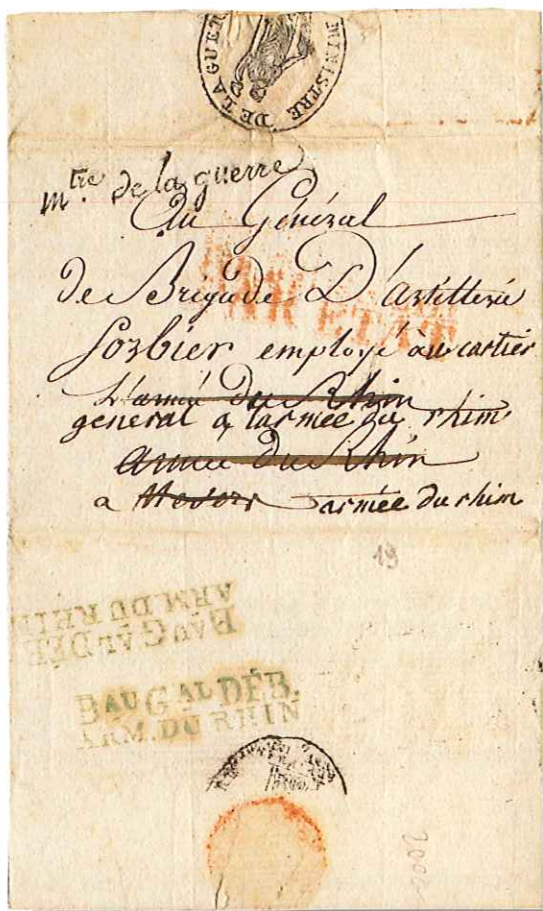 MINISTRE DE LA GUER
mtre. de la guerre
Au Général
de Brigade D'artillerie
Sorbier employé au cartier
L'armée Du Rhin
general a larmée du rhim
armée du Rhin
a armée du rhim
19
BAU GAL DÉB.
ARM. DU RHIN
BAU GAL DÉB.
ARM. DU RHIN